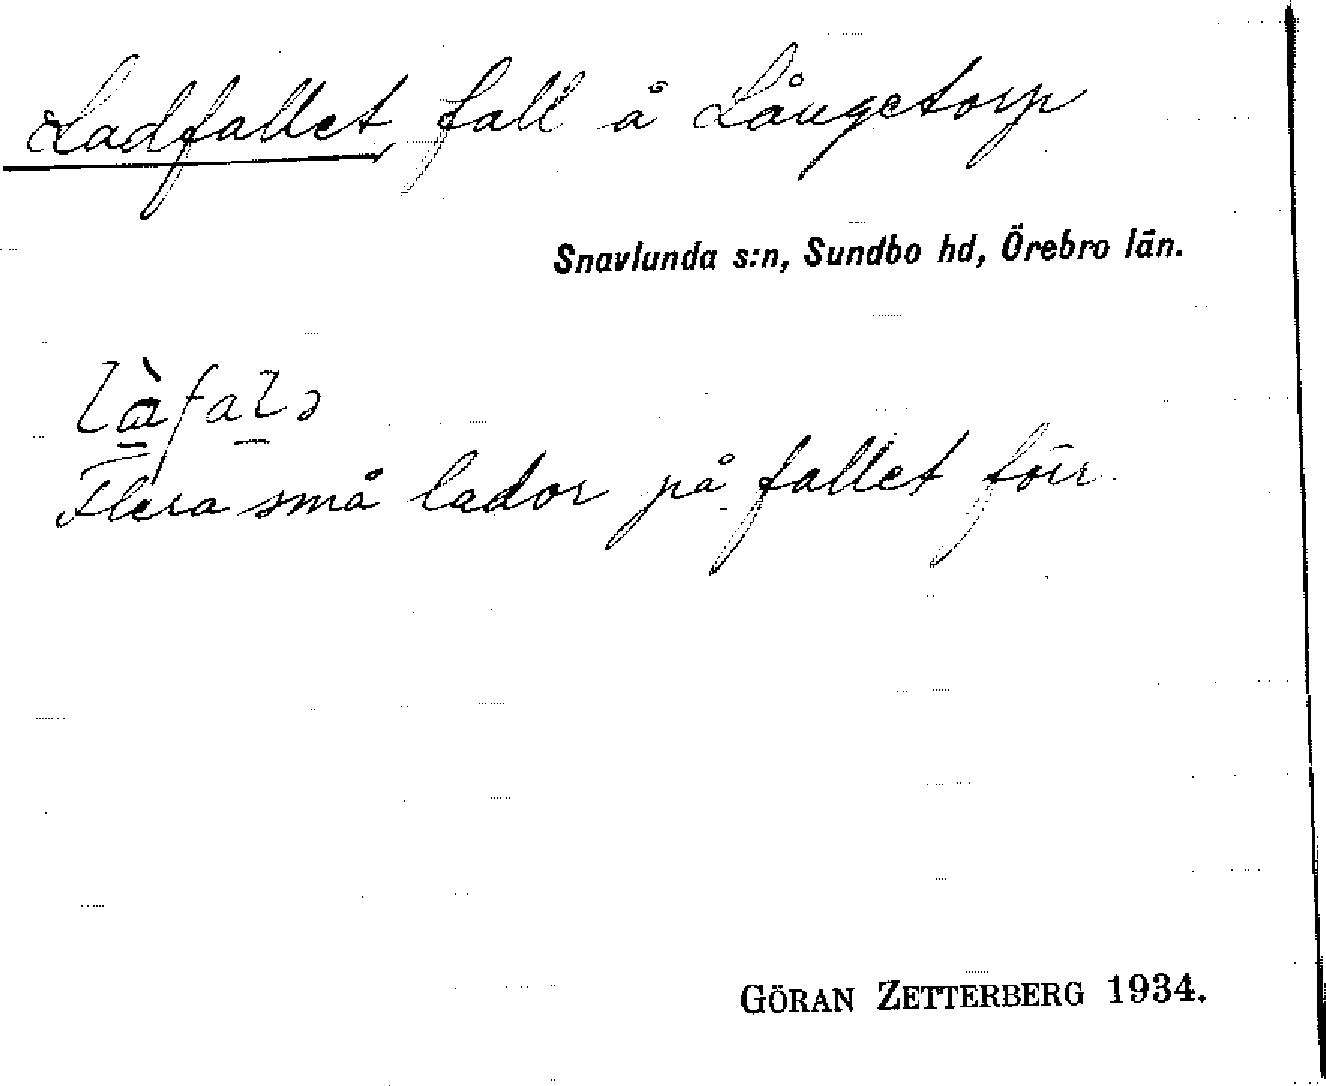 Ladfallet, fall å Långetorp
Snavlunda s:n, Sundbo hd, Örebro län.
là̱fal̠ɔ
Flera små lador på fallet förr
GÖRAN ZETTERBERG 1934.